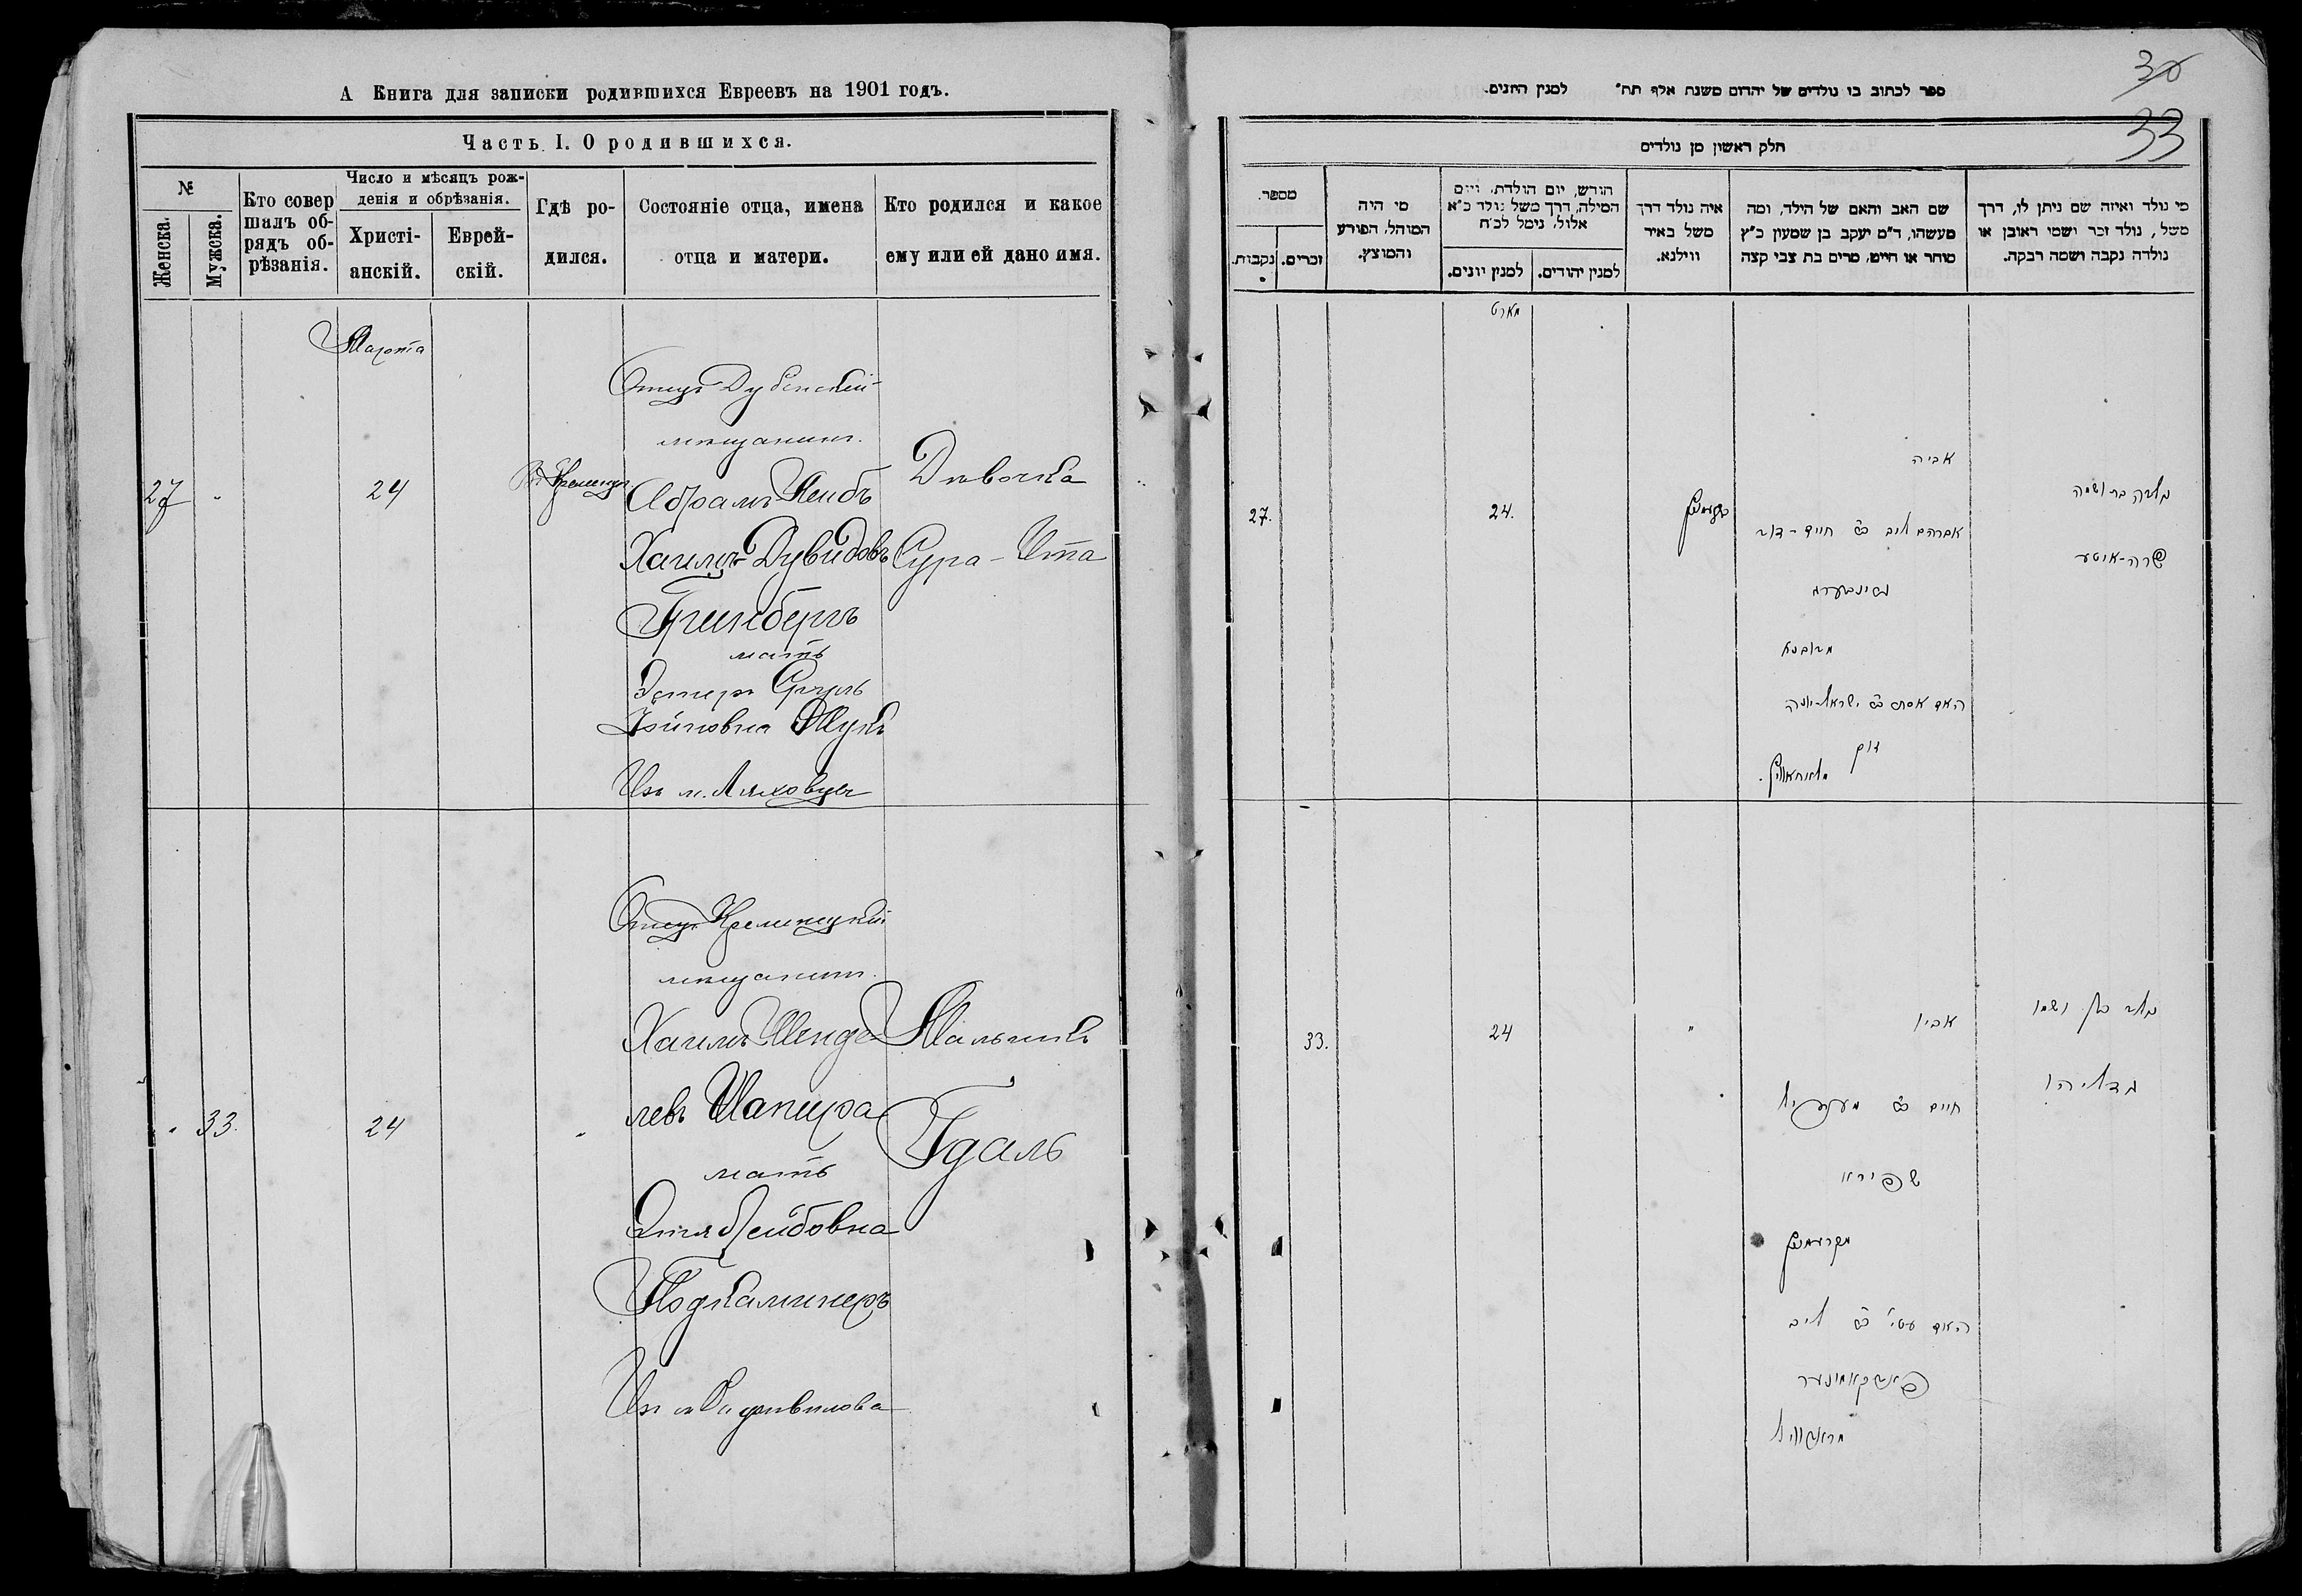 А Книга для записки родившихся Евреевъ на 1901 годъ.
Часть I. О родившихся.
№
Женска.
Мужска.
Кто совер
шалъ об-
рядъ об-
рѣзанія.
Число и мѣсяцъ рож-
денія и обрѣзанія.
Христі-
анскій.
Еврей-
скій.
Гдѣ ро-
дился.
Состояніе отца, имена
отца и матери.
Кто родился и какое
ему или ей дано имя.
Марта
27
24
Отецъ Дубенскій
мѣщанинъ
Абрамъ Лейбъ
Хаимъ-Дувидовъ
Гринбергъ
мать
Эстеръ
Мукъ
Изъ м. Ляховцы
Дѣвочка
Сура-Ита
33.
24
Отецъ Кременецкій
мѣщанинъ
Хаимъ Менде
левъ Шапира
мать
Этля Лейбовна
Подкаминеръ
Изъ м. Радзивилова
Мальчикъ
Гдаль
30
33
ספר לכתוב בו נולדים של יהודים משנת אלף תת" למנין היונים.
חלק ראשון מן נולדים
מספר.
נקבות.
זכרים.
מי היה
המוהל, הפורע
והמוצץ.
חודש, יום הולדת, ויום
המילה, דרך משל נולד כ"א
אלול, נימל לכ"ח
למנין יונים.
למנין יהודים.
איה נולד דרך
משל באיר
ווילנא.
שם האב והאם של הילד, ומה
מעשהו, ד"מ יעקב בן שמעון כ"ץ
סוחר או חייט, מרים בת צבי קצה
מי נולד ואיזה שם ניתן לו, דרך
משל, נולד זכר ושמו ראובן או
נולדה נקבה ושמה רבקה.
מארט
27.
24.
אביה
אברהם ליב
גרינבערג
מדובנא
נולדה בת ושמה
שרה-איטע
33.
24
"
אביו
חיים
שפירא
מקרעמניץ
ליב
פאדקאמינער
נולד בן ושמו
גדליהו